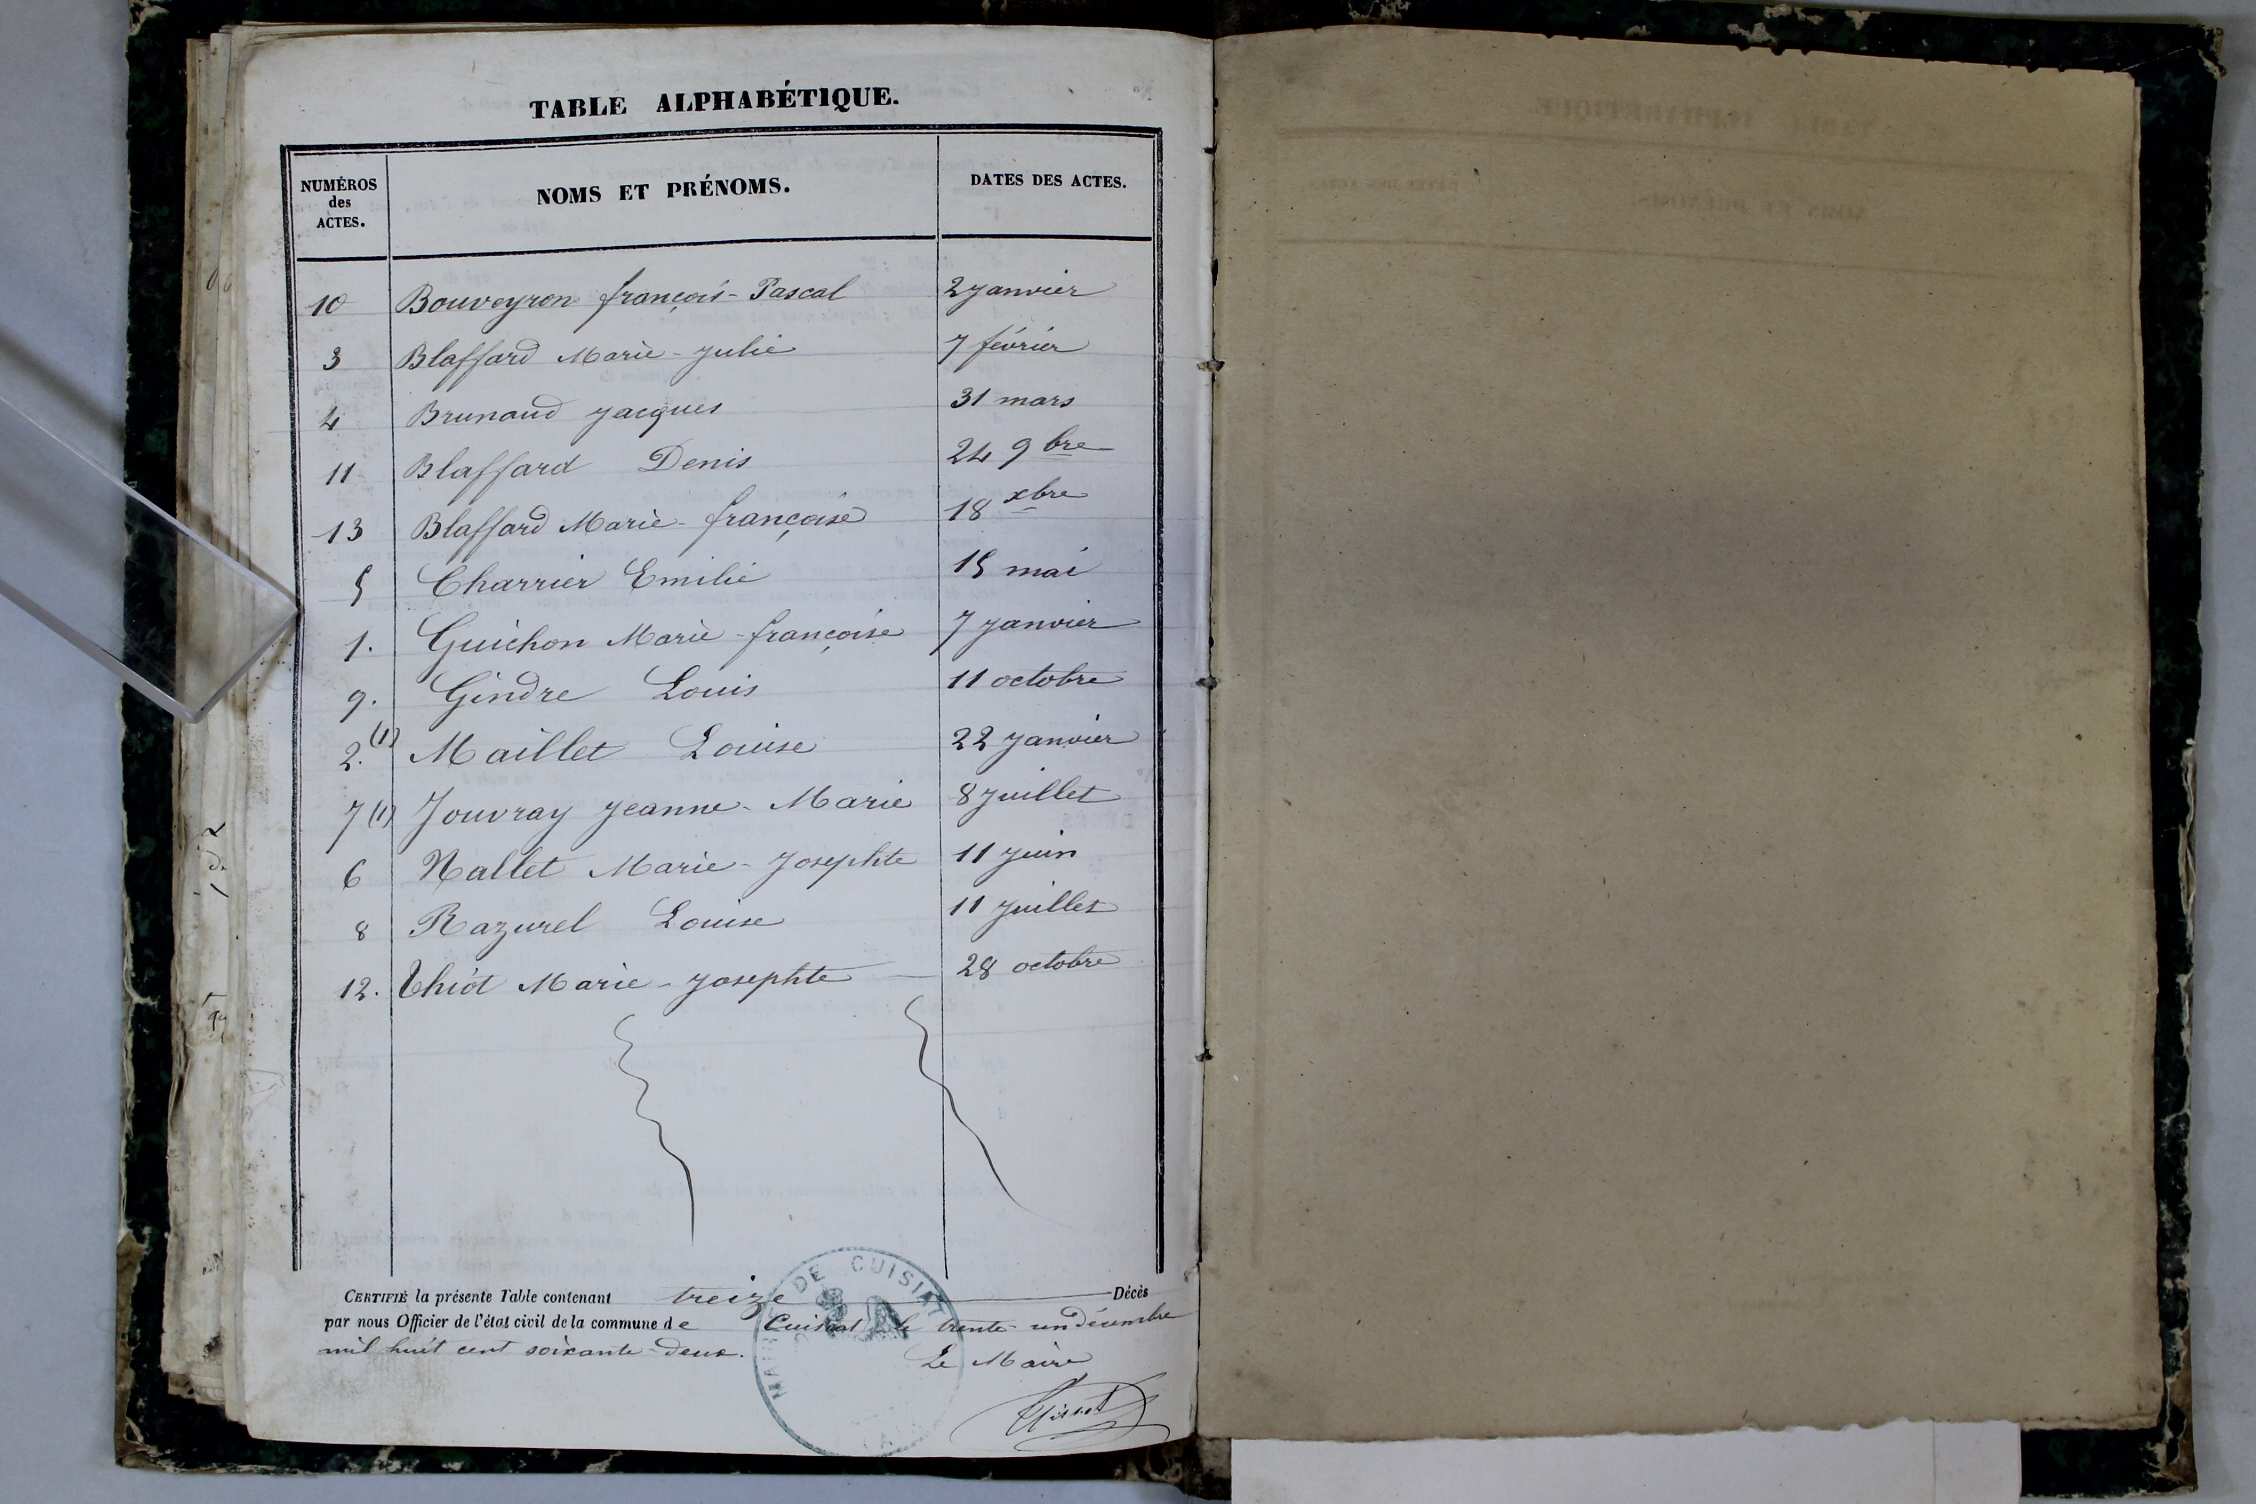 TABLE ALPHABÉTIQUE.
NUMÉROS des ACTES. NOMS ET PRÉNOMS. DATES DES ACTES.
10 Bouveyron françois-Pascal 2 janvier
3 Blaffard Marie-Julie 7 février
4 Brunaud Jacques 31 mars
11 Blaffard Denis 24 9bre
13 Blaffard Marie-françoise 18 xbre
5 Charrier Emilie 15 mai
1. Guichon Marie-françoise 7 janvier
9. Gindre Louis 11 octobre
2.(1) Maillet Louise 22 janvier
7(1) Jouvray Jeanne-Marie 8 juillet
6 Nallet Marie-Josephte 11 juin
8 Razurel Louise 11 juillet
12. Thiot Marie-Josephte 28 octobre
CERTIFIÉ la présente Table contenant treize Décès
par nous Officier de l'état civil de la commune de Cuisiat le trente-un décembre
mil huit cent soixante-deux.
Le Maire
MAIRIE DE CUISIAT